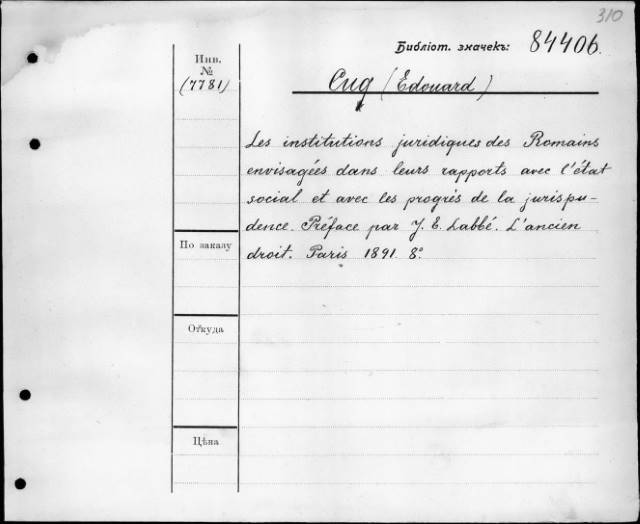 310
Библіот. значекъ: 84406.
Инв.
№
(7781)
Cuq (Édouard)
Les institutions juridiques des Romains
envisagées dans leurs rapports avec l'état
social et avec les progrès de la jurispu-
dence. Préface par J. E. Labbé. L'ancien
droit. Paris 1891. 8°.
По заказу
Откуда
Цѣна